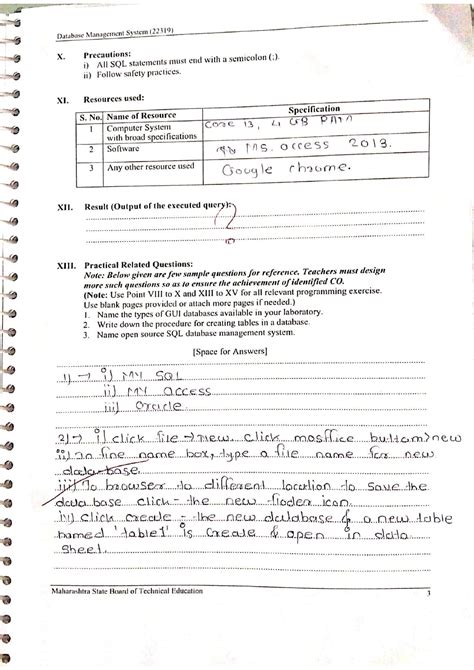 Database Management System (22319)
X. Precautions:
i) All SQL statements must end with a semicolon (;).
ii) Follow safety practices.
XI. Resources used:
S. No. Name of Resource Specification
1 Computer System with broad specifications Core I3, 4 GB RAM
2 Software MS. access 2013.
3 Any other resource used Google chrome.
XII. Result (Output of the executed query):
XIII. Practical Related Questions:
Note: Below given are few sample questions for reference. Teachers must design
more such questions so as to ensure the achievement of identified CO.
(Note: Use Point VIII to X and XIII to XV for all relevant programming exercise.
Use blank pages provided or attach more pages if needed.)
1. Name the types of GUI databases available in your laboratory.
2. Write down the procedure for creating tables in a database.
3. Name open source SQL database management system.
[Space for Answers]
1) → i) MY SQL
ii) MY access
iii) Oracle
2) → i) click file → new. click mosffice buttom > new
ii) In fine name box, type a file name for new
data-base.
iii) To browser to different location to save the
data base click - the new floder icon.
iv) click create - the new database & a new table
named 'table1' is create & open in data
sheet.
Maharashtra State Board of Technical Education 3